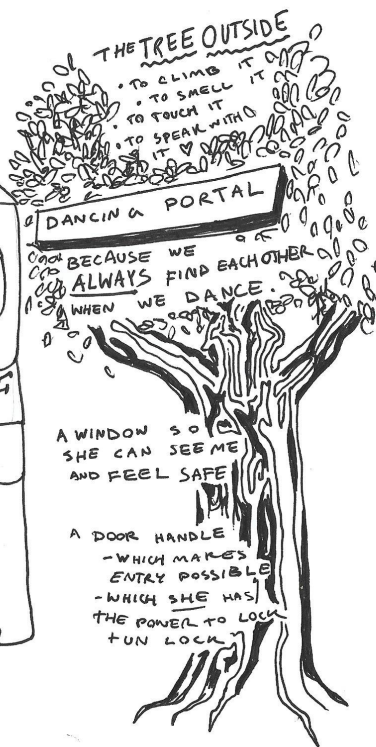 THE TREE OUTSIDE
• TO CLIMB IT
• TO SMELL IT
• TO TOUCH IT
• TO SPEAK WITH
IT ♡
DANCING PORTAL
BECAUSE WE
ALWAYS FIND EACH OTHER
WHEN WE DANCE.
A WINDOW SO
SHE CAN SEE ME
AND FEEL SAFE
A DOOR HANDLE
- WHICH MAKES
ENTRY POSSIBLE
- WHICH SHE HAS
THE POWER TO LOCK
+ UN LOCK